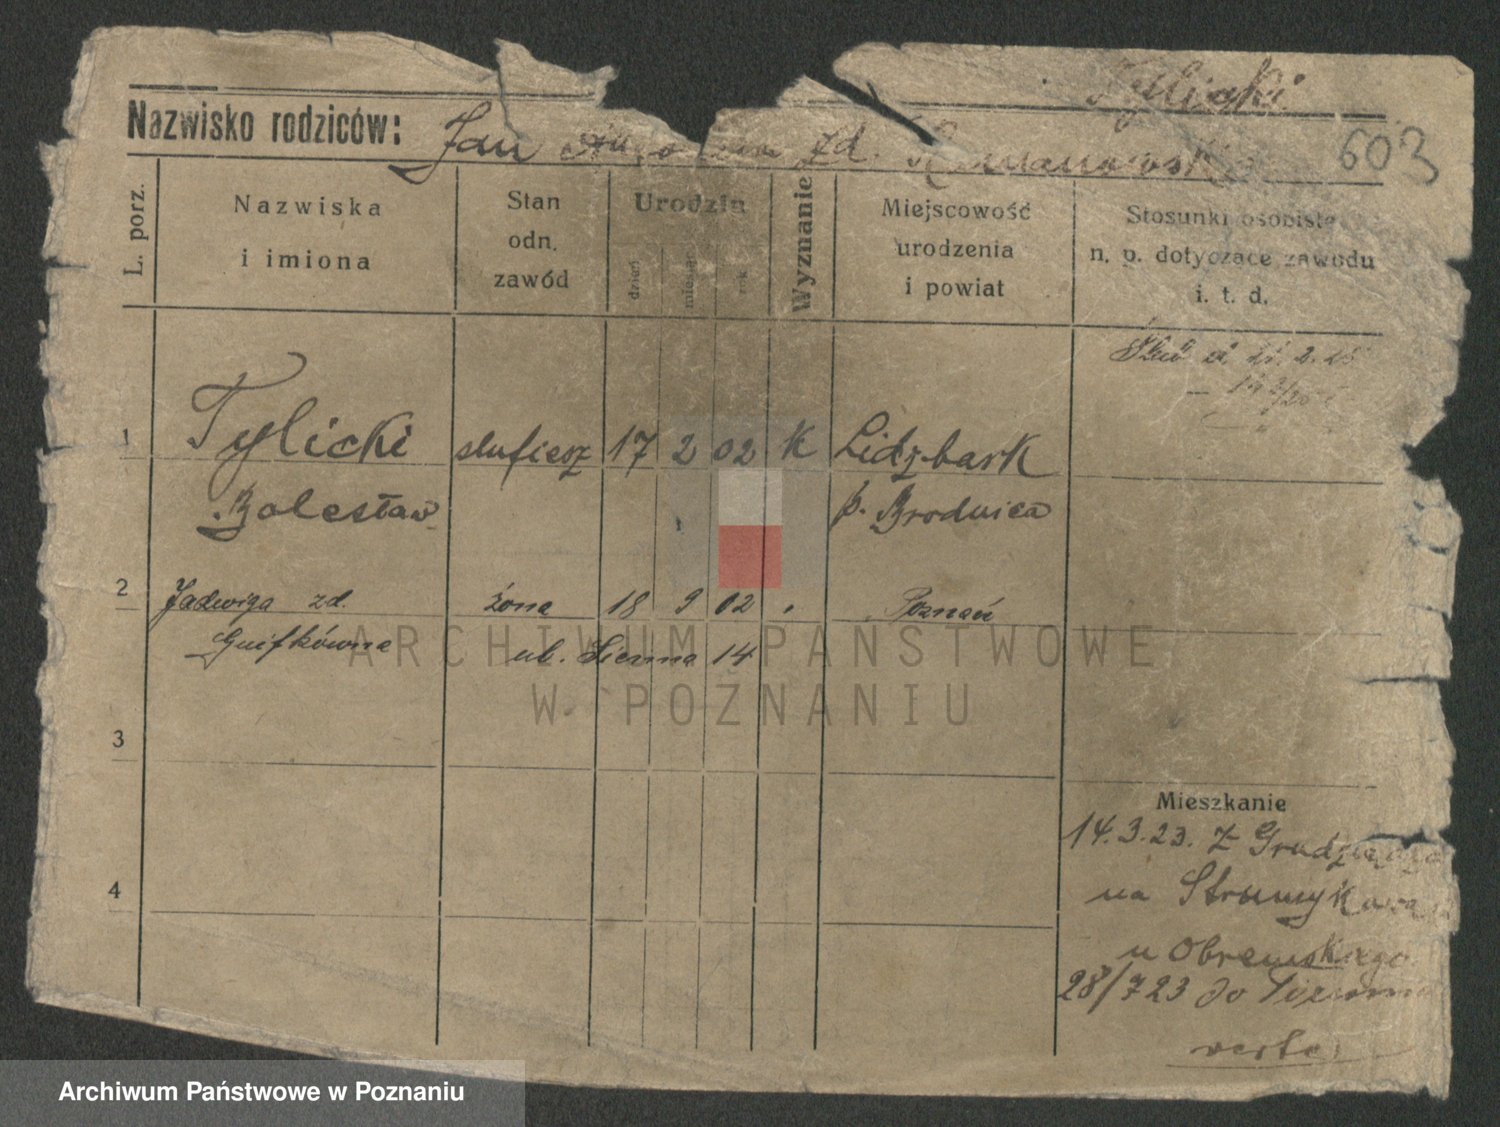 Tylicki
Nazwisko rodziców: Jan zd. Romanowska 603
L. porz. Nazwiska i imiona Stan odn. zawód Urodzin dzień miesiąc rok Wyznanie Miejscowość urodzenia i powiat Stosunki osobiste n. p. dotyczące zawodu i. t. d.
21.2.25
1 Tylicki 17 2 02 K Lidzbark
Bolesław p. Brodnica
2 Jadwiga zd. żona 18 9 02 Poznań
ul. Sienna 14
ARCHIWUM PAŃSTWOWE
W POZNANIU
3
Mieszkanie
14.3.23. z Grudziądza
4 na Strumykowa
u Obremskiego
28/7 23 do Sienna
verte
Archiwum Państwowe w Poznaniu